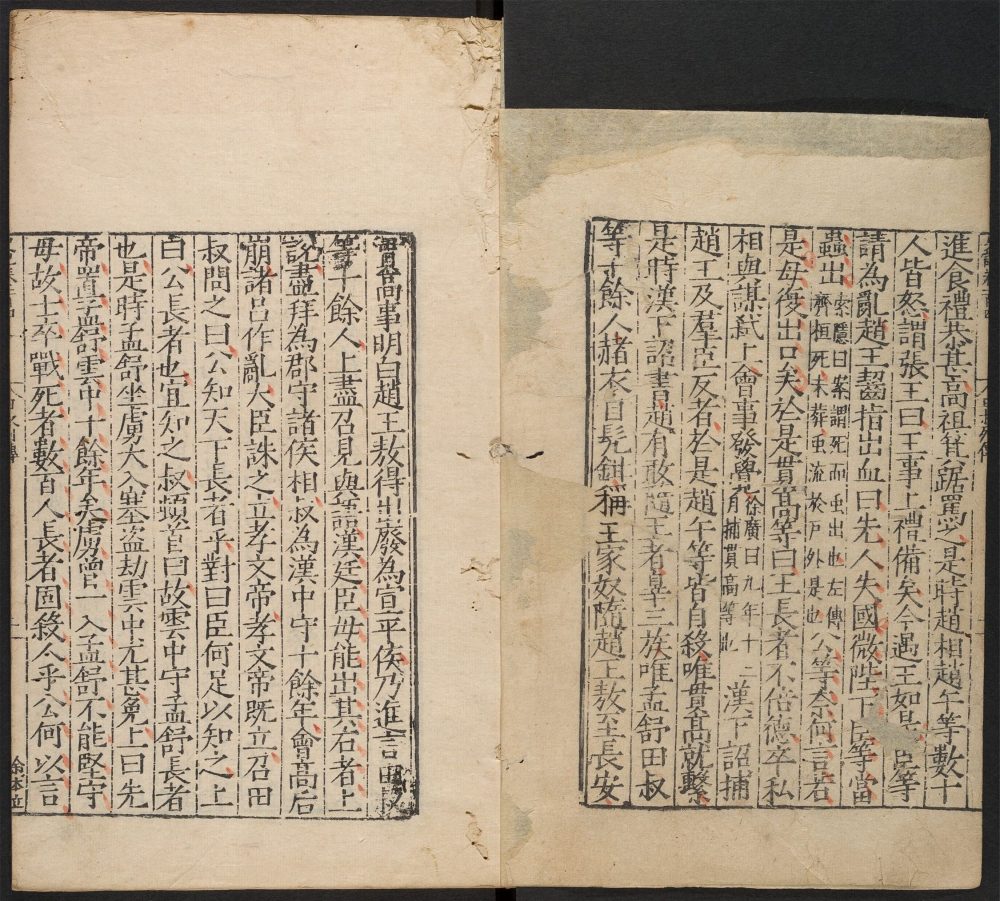 進食禮恭甚高祖箕踞罵之是時趙相趙午等數十
人皆怒謂張王曰王事上禮備矣今遇王如是臣等
請為亂趙王齧指出血曰先人失國微陛下臣等當
蟲出索隱曰案謂死而虫出也左傳齊桓死未葬虫流於戶外是也公等奈何言若
是毋復出口矣於是貫高等曰王長者不倍德卒私
相與謀弒上會事發覺徐廣曰九年十二月捕貫高等也漢下詔捕
趙王及羣臣反者於是趙午等皆自殺唯貫高就繫
是時漢下詔書趙有敢隨王者辠三族唯孟舒田叔
等十餘人赭衣自髡鉗稱王家奴隨趙王敖至長安
貫高事明白趙王敖得出廢為宣平侯乃進言田叔
等十餘人上盡召見與語漢廷臣毋能出其右者上
說盡拜為郡守諸侯相叔為漢中守十餘年會高后
崩諸呂作亂大臣誅之立孝文帝孝文帝既立召田
叔問之曰公知天下長者乎對曰臣何足以知之上
曰公長者也宜知之叔頓首曰故雲中守孟舒長者
也是時孟舒坐虜大入塞盜劫雲中尤甚免上曰先
帝置孟舒雲中十餘年矣虜曾一入孟舒不能堅守
毋故士卒戰死者數百人長者固殺人乎公何以言